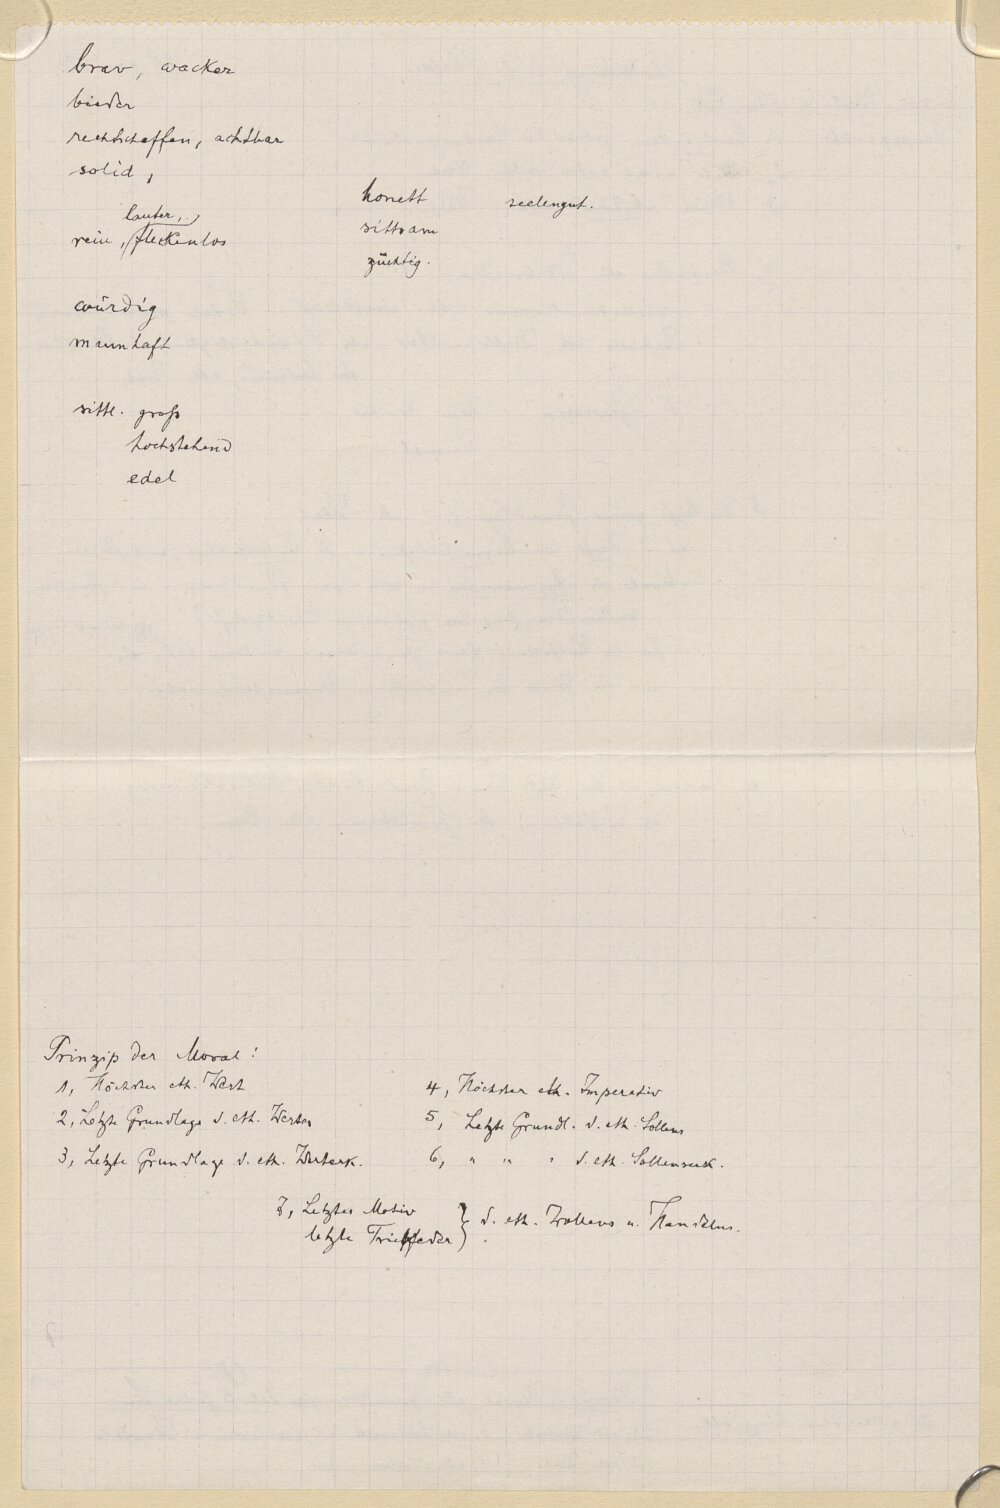 brav, wacker
bieder
rechtschaffen, achtbar
solid,
lauter,
rein, fleckenlos
honett seelengut.
sittsam
züchtig.
würdig
mannhaft
sittl. groß
hochstehend
edel
Prinzip der Moral:
1, Höchster eth. Wert
2, Letzte Grundlage d. eth. Wertes
3, Letzte Grundlage d. eth. Werterk.
4, Höchster eth. Imperativ
5, Letzte Grundl. d. eth. Sollens
6, " " " d. eth. Sollenserk.
7, Letztes Motiv
letzte Triebfeder } d. eth. Wollens u. Handelns.